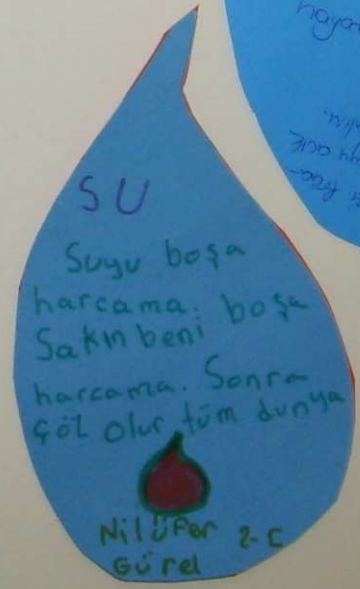 SU
Suyu boşa
harcama. boşa
Sakın beni
harcama. Sonra
çöl olur tüm dunya
Nilüfer 2-C
Gürel